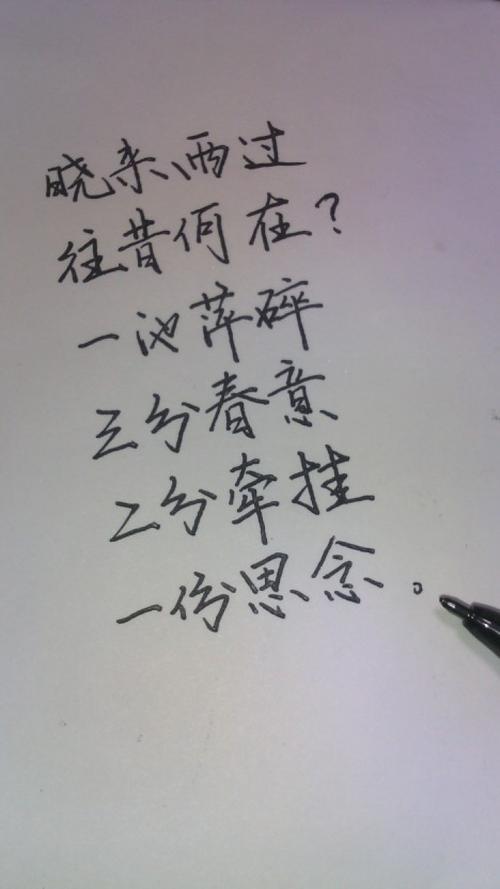 晓来雨过
往昔何在？
一池萍碎
三分春意
二分牵挂
一份思念。